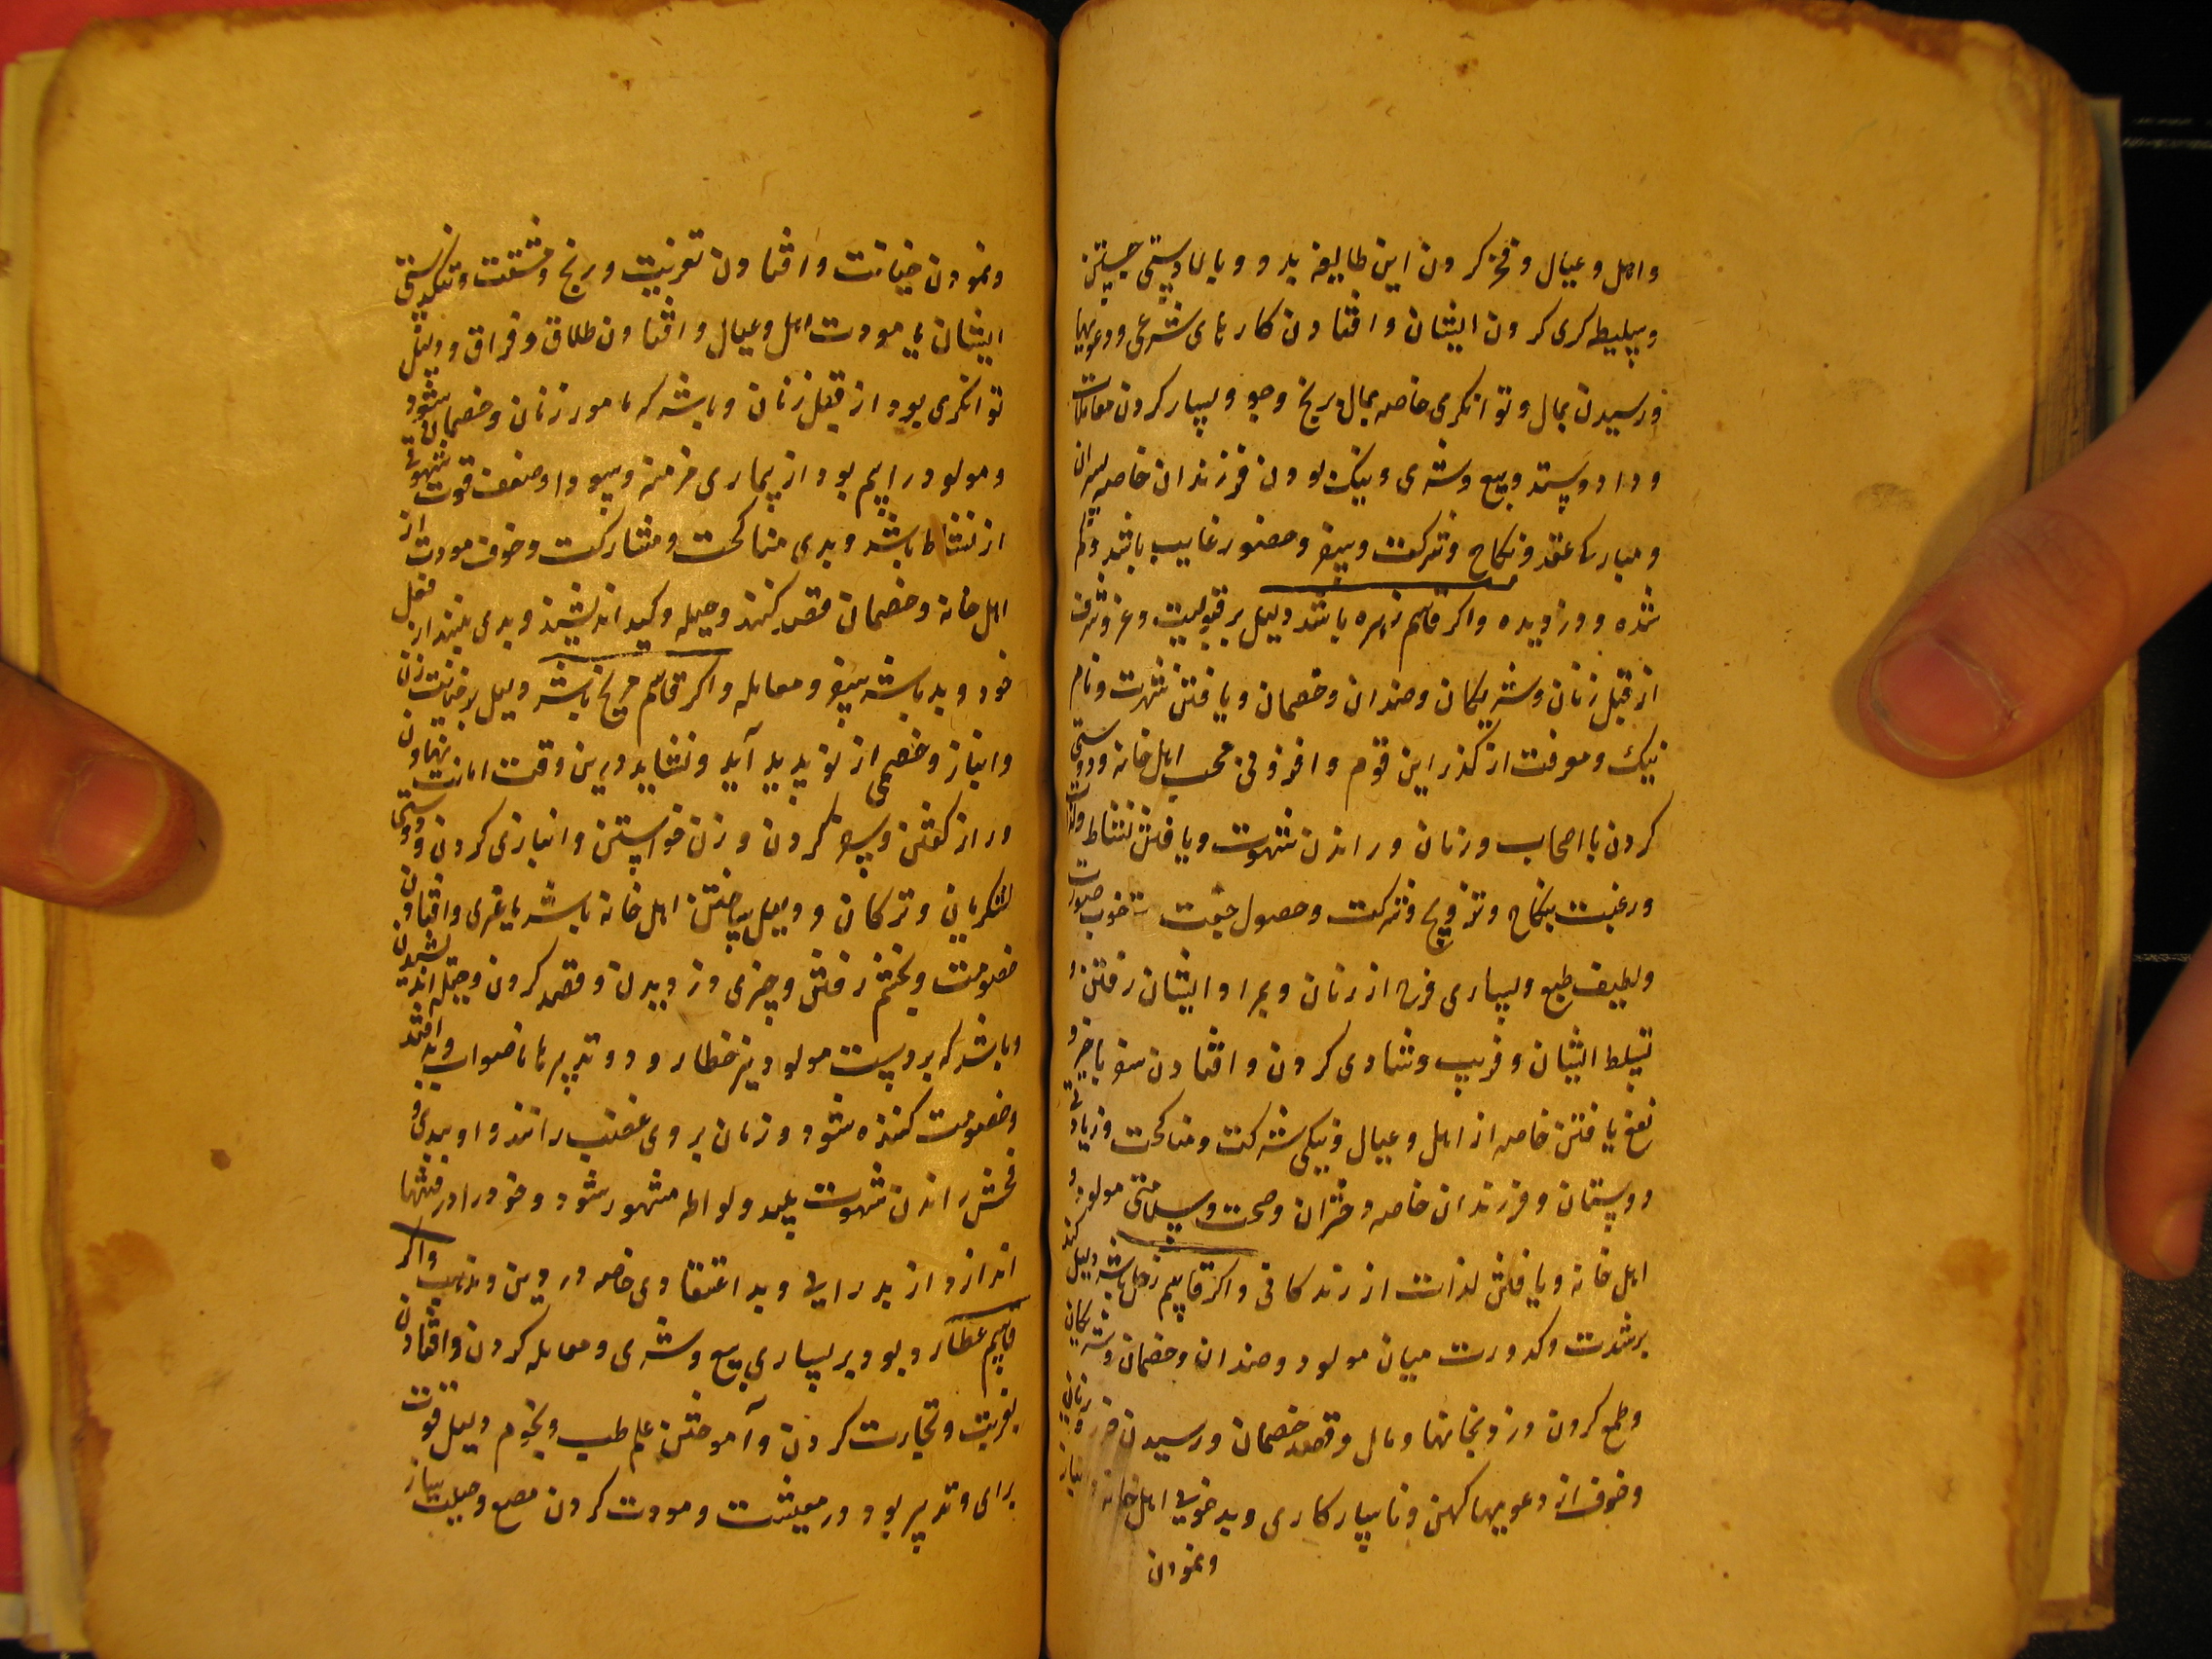 و اهل و عیال و فخر کردن این طایفه بدو و با او دوستی جستن
و سلیطه کری کردن ایشان و افتادن کارهای شرعی و دعویها
و رسیدن بمال و توانکری خاصه بمال و بسیار کردن معاملات
و داد و ستد و بیع و شری و نیک بودن فرزندان خاصه پسران
و مبارک عقد و نکاح و شرکت و سفر و حضور غایب باشد و کم
شده و دزدیده و اکر قاسم زهره باشد دلیل بر قبولیت و عز و شرف
از قبل زنان و شریکان و ضدان و خصمان و یافتن شهرت و نام
نیک و معرفت از کذر این قوم و افزونی محب اهل خانه و دوستی
کردن با اصحاب و زنان و راندن شهوت و یافتن نشاط و لذات
و رغبت بنکاح و تزویج و شرکت و حصول جفت خوب صورت
و لطیف طبع و بسیاری فرح از زنان و بمراد ایشان رفتن و
تسلط ایشان و فریب و شادی کردن و افتادن سفر با خیر و
نفع یافتن خاصه از اهل و عیال و نیکی شرکت و مناکحت و زیادتی
دوستان و فرزندان خاصه دختران و صحت و سلامتی مولود و
اهل خانه و یافتن لذات از زندکانی و اکر قاسم زحل باشد دلیل کند
بر شدت و کدورت میان مولود و ضدان و خصمان و شریکان
و طمع کردن دزد بخانها و مال و قصد خصمان و رسیدن
و خوف از دعویها کهن و ناسپارکاری و بدخویی اهل خانه
و نمودن
و نمودن خیانت و افتادن تعزیت و رنج و مشقت و تنکدستی
ایشان یا موت اهل و عیال و افتادن طلاق و فراق و دلیل
توانکری بود از قبل زنان و باشد که مامور زنان و خصمان شود
و مولود را بیم بود از بیماری مزمنه و سودا و ضعف قوت شهوتی
از نشاط باشد و بدی مناکحت و مشارکت و خوف موت از
اهل خانه و خصمان قصد کنند و حیله و کید اندیشند و بدی بینند از فعل
خود و بد باشد سفر و معامله و اکر قاسم مریخ باشد دلیل بر خیانت زن
و انباز و خصمی از نو پدید آید و نشاید درین وقت امانت نهادن
و راز کفتن و سفر کردن و زن خواستن و انبازی کردن و دوستی
لشکریان و ترکان و دلیل ساختن اهل خانه باشد یا غری و افتادن
خصومت و بخشم رفتن و چیزی دزدیدن و قصد کردن و حیله اندیشیدن
و باشد که بر دست مولود نیز خطا رود و تدبیرها ناصواب و بد افتد
و خصومت کننده شود و زنان بر وی غضب رانند و او ببدی و
فحش راندن شهوت پلید و لواطه مشهور شود و خود را در فتنها
اندازد از بد رایی و بد اعتقادی خاصه در دین و مذهب و اکر
قاسم عطارد بود بر بسیاری بیع و شری و معامله کردن و افتادن
بغربت و تجارت کردن و آموختن علم طب و نجوم دلیل قوت
رای و تدبیر بود در معیشت و مودت کردن مصلح و حیلت ساز